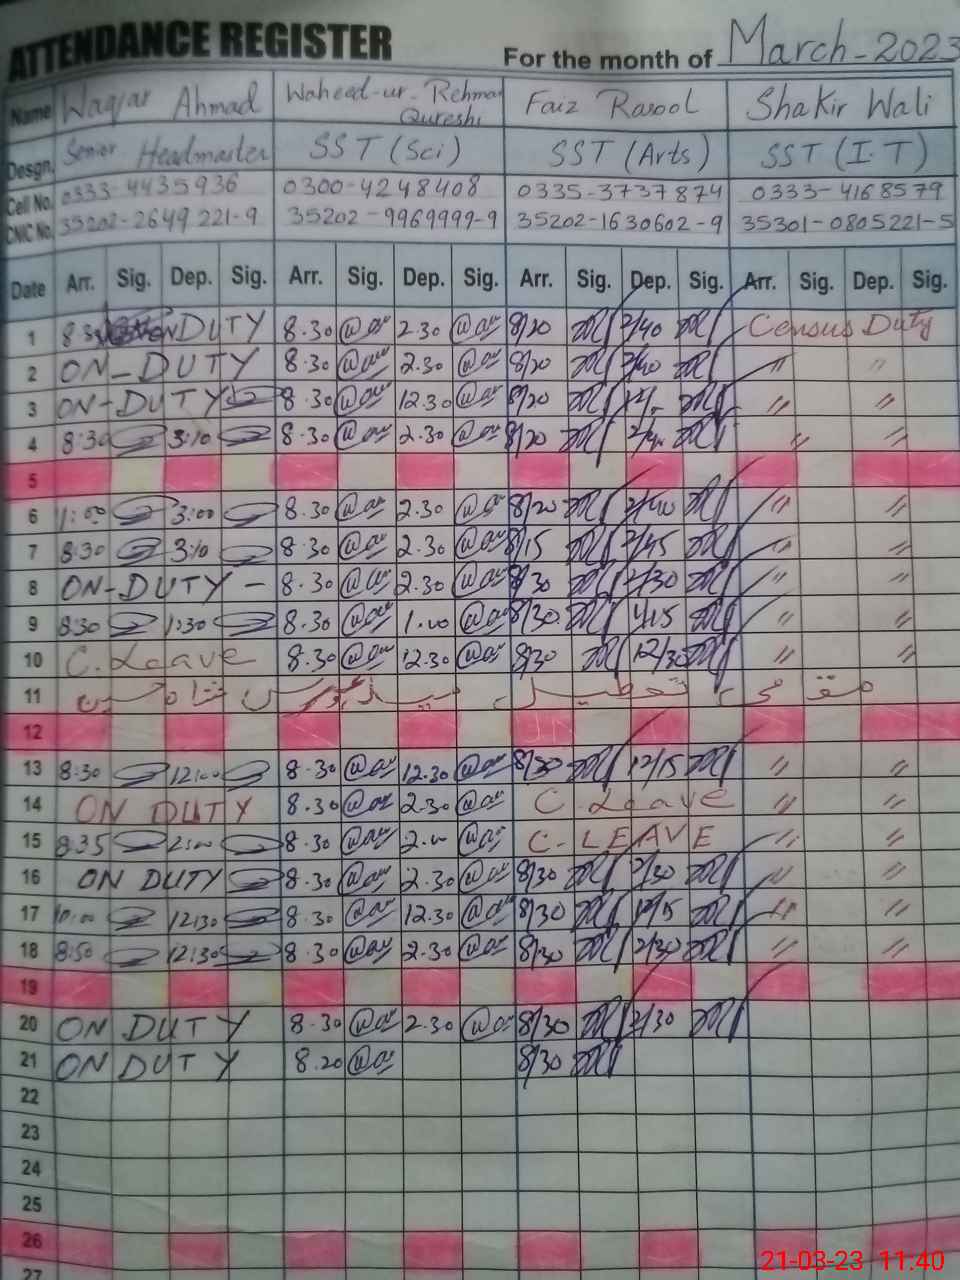 ATTENDANCE REGISTER For the month of March-2023
Name Waqar Ahmad Waheed-ur-Rehman Qureshi Faiz Rasool Shakir Wali
Desgn. Senior Headmaster SST (Sci) SST (Arts) SST (I.T)
Cell No. 0333-4435936 0300-4248408 0335-3737874 0333-4168579
CNIC No. 35202-2649221-9 35202-9969999-9 35202-1630602-9 35301-0805221-5
Date Arr. Sig. Dep. Sig. Arr. Sig. Dep. Sig. Arr. Sig. Dep. Sig. Arr. Sig. Dep. Sig.
1 8:30 ON DUTY 8.30 2.30 8/20 2/40 Census Duty
2 ON-DUTY 8.30 2.30 8/20 2/40 " "
3 ON-DUTY 8.30 12.30 8/20 " "
4 8:30 3:10 8.30 2.30 8/20 " "
5
6 3:00 8.30 2.30 8/20 2/40 " "
7 8:30 3:10 8.30 2.30 8/15 2/45 " "
8 ON-DUTY - 8.30 2.30 8/30 2/30 " "
9 8:30 1:30 8.30 1.00 8/30 " "
10 C. Leave 8.30 12.30 8/30 12/30 " "
11 مقامی تعطیل
12
13 8:30 12:00 8.30 12.30 8/30 12/15 " "
14 ON DUTY 8.30 2.30 C. Leave " "
15 8:35 2:00 8.30 2.00 C-LEAVE " "
16 ON DUTY 8.30 2.30 8/30 2/30 " "
17 10:00 12:30 8.30 12.30 8/30 12/15 " "
18 8:50 12:30 8.30 2.30 8/30 2/30 " "
19
20 ON DUTY 8.30 2.30 8/30 2/30
21 ON DUTY 8.20 8/30
22
23
24
25
26
27
21-03-23 11.40